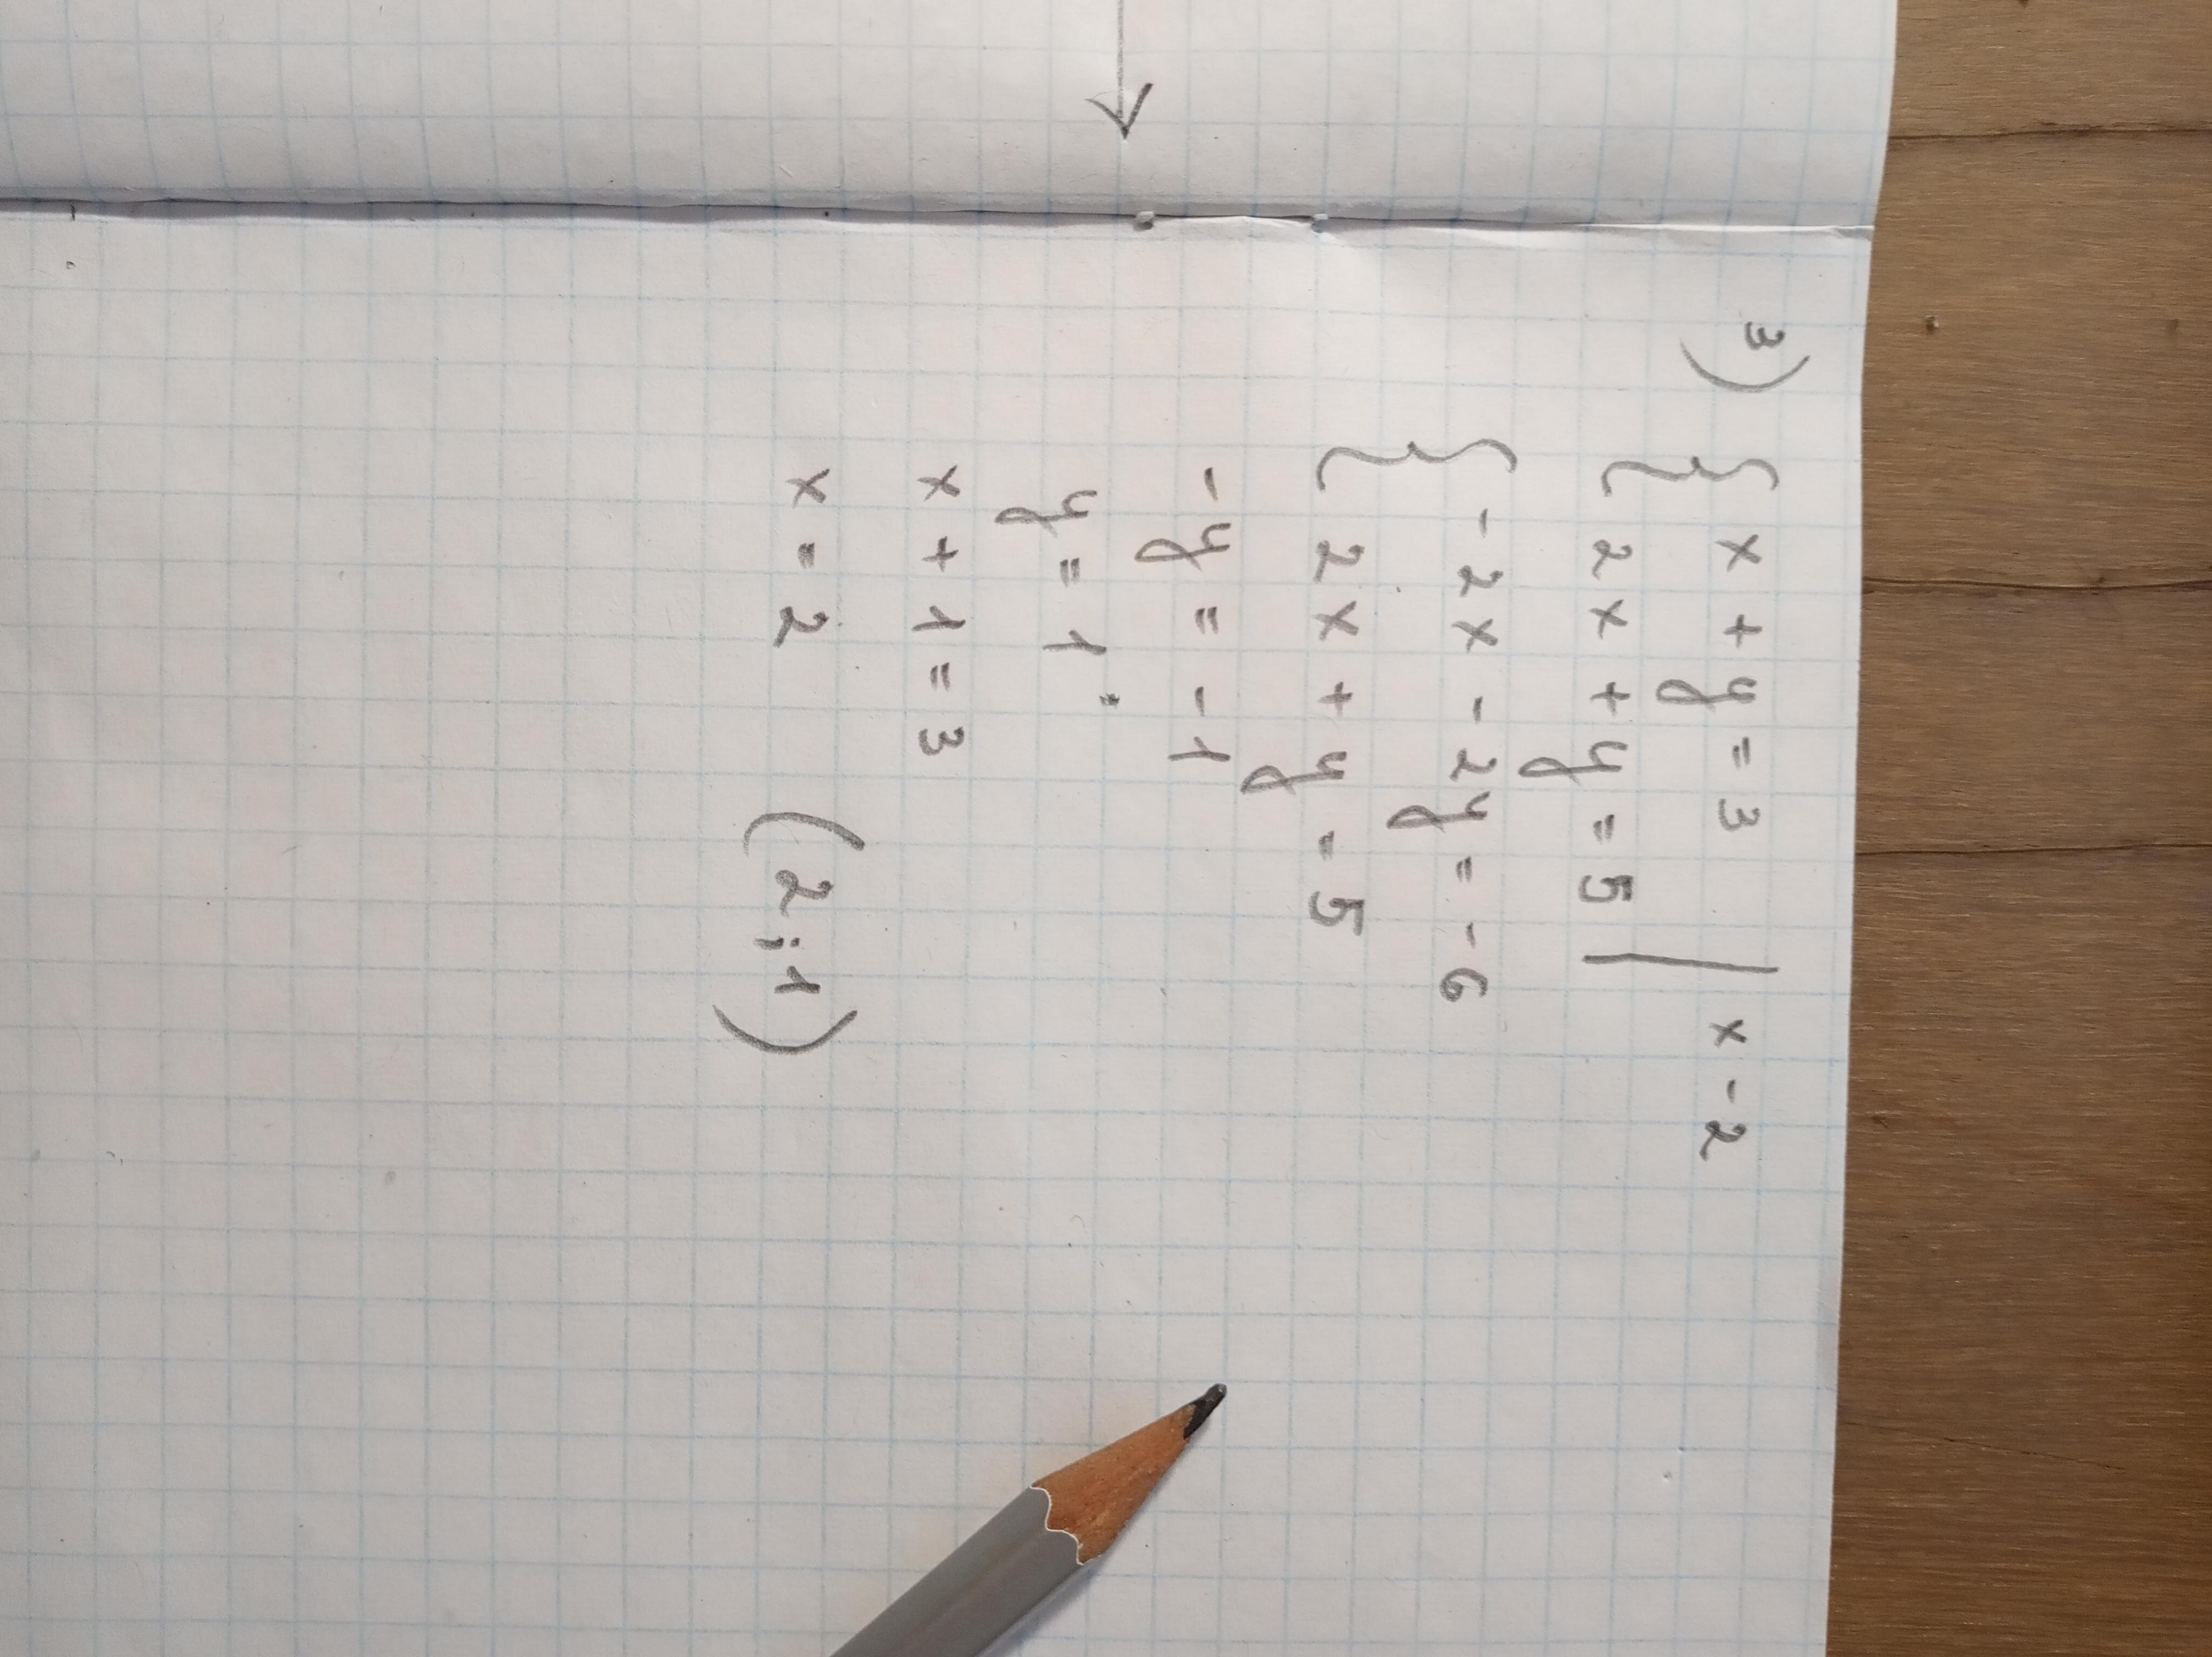 3) { x + y = 3 | x -2
{ 2x + y = 5 |
{ -2x - 2y = -6
{ 2x + y = 5
-y = -1
y = 1
x + 1 = 3
x = 2 (2;1)